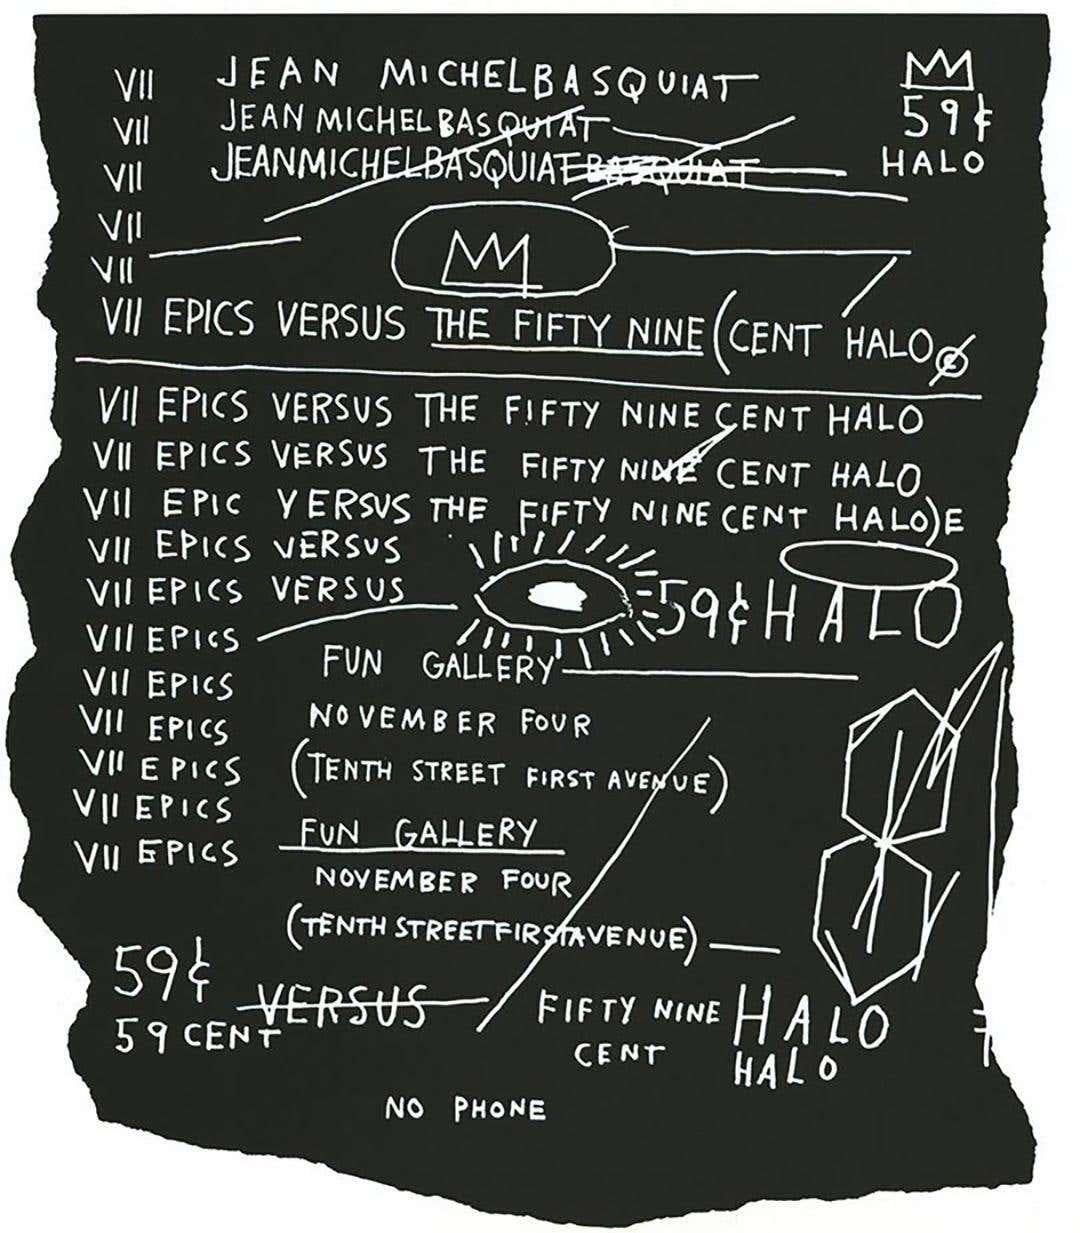 VII JEAN MICHEL BASQUIAT
59¢
VII JEAN MICHEL BASQUIAT
HALO
VII JEANMICHELBASQUIAT BASQUIAT
VII
VII
VII EPICS VERSUS THE FIFTY NINE (CENT HALO
VII EPICS VERSUS THE FIFTY NINE CENT HALO
VII EPICS VERSUS THE FIFTY NINE CENT HALO
VII EPIC VERSUS THE FIFTY NINE CENT HALO)E
VII EPICS VERSUS
VII EPICS VERSUS
59¢ HALO
VII EPICS
FUN GALLERY
VII EPICS
VII EPICS
NOVEMBER FOUR
VII EPICS
(TENTH STREET FIRST AVENUE)
VII EPICS
FUN GALLERY
VII EPICS
NOVEMBER FOUR
(TENTH STREET FIRST AVENUE)
59¢
VERSUS
59 CENT
FIFTY NINE HALO
CENT
HALO
NO PHONE